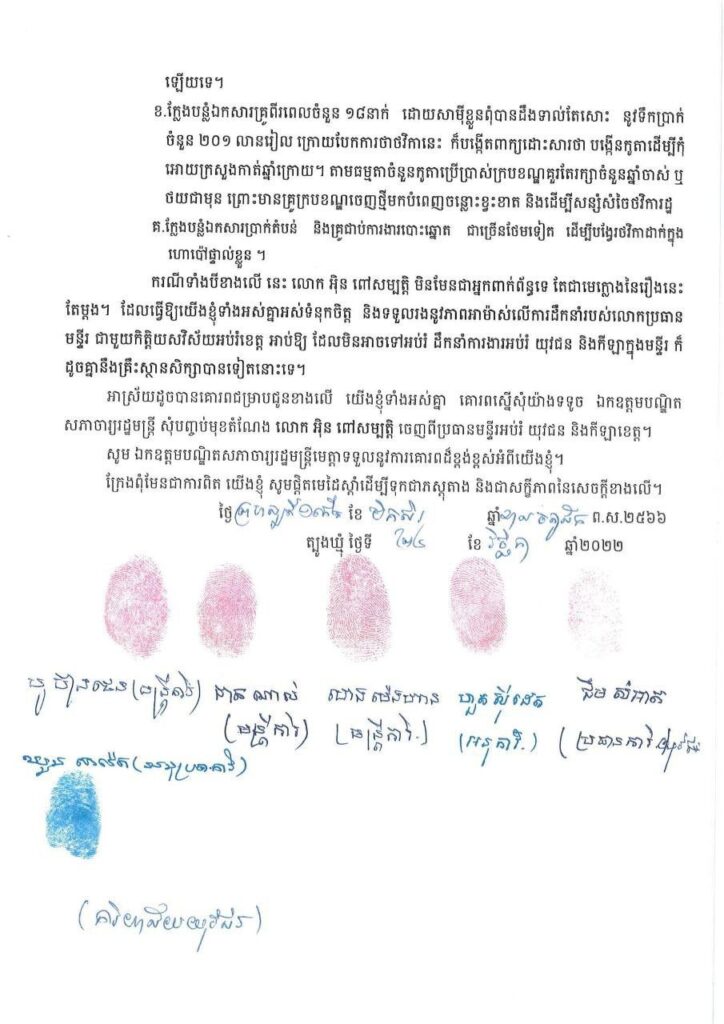 ឡើយទេ។
ខ.ក្លែងបន្លំឯកសារគ្រូពីរពេលចំនួន ១៨នាក់ ដោយសាមុីខ្លួនពុំបានដឹងទាល់តែសោះ នូវទឹកប្រាក់
ចំនួន ២០១ លានរៀល ក្រោយបែកការថាថវិកានេះ ក៏បង្កើតពាក្យដោះសារថា បង្កើនកូតាដើម្បីកុំ
អោយក្រសួងកាត់ឆ្នាំក្រោយ។ តាមធម្មតាចំនួនកូតាប្រើប្រាស់ក្របខណ្ឌគួរតែរក្សាចំនួនឆ្នាំចាស់ ឬ
ថយជាមុន ព្រោះមានគ្រូក្របខណ្ឌចេញថ្មីមកបំពេញចន្លោះខ្វះខាត និងដើម្បីសន្សំសំចៃថវិការដ្ឋ
គ.ក្លែងបន្លំឯកសារប្រាក់តំបន់ និងគ្រូជាប់ការងារបោះឆ្នោត ជាច្រើនថែមទៀត ដើម្បីបង្វែរថវិកាដាក់ក្នុង
ហោប៉ៅផ្ទាល់ខ្លួន ។
ករណីទាំងបីខាងលើ នេះ លោក អ៊ិន ពៅសម្បត្តិ មិនមែនជាអ្នកពាក់ព័ន្ធទេ តែជាមេក្លោងនៃរឿងនេះ
តែម្តង។ ដែលធ្វើឱ្យយើងខ្ញុំទាំងអស់គ្នាអស់ទំនុកចិត្ត និងទទួលរងនូវភាពអាម៉ាស់លើការដឹកនាំរបស់លោកប្រធាន
មន្ទីរ ជាមួយកិត្តិយសវិស័យអប់រំខេត្ត អាប់ឱ្យ ដែលមិនអាចទៅអប់រំ ដឹកនាំការងារអប់រំ យុវជន និងកីឡាក្នុងមន្ទីរ ក៏
ដូចគ្នានឹងគ្រឹះស្ថានសិក្សាបានទៀតនោះទេ។
អាស្រ័យដូចបានគោរពជម្រាបជូនខាងលើ យើងខ្ញុំទាំងអស់គ្នា គោរពស្នើសុំយ៉ាងទទូច ឯកឧត្តមបណ្ឌិត
សភាចារ្យរដ្ឋមន្ត្រី សុំបញ្ចប់មុខតំណែង លោក អ៊ិន ពៅសម្បត្តិ ចេញពីប្រធានមន្ទីរអប់រំ យុវជន និងកីឡាខេត្ត។
សូម ឯកឧត្តមបណ្ឌិតសភាចារ្យរដ្ឋមន្ត្រីមេត្តាទទួលនូវការគោរពដ៏ខ្ពង់ខ្ពស់អំពីយើងខ្ញុំ។
ក្រែងពុំមែនជាការពិត យើងខ្ញុំ សូមផ្តិតមេដៃស្តាំដើម្បីទុកជាភស្តុតាង និងជាសក្ខីភាពនៃសេចក្តីខាងលើ។
ថ្ងៃ ខែ មិគសិរ ឆ្នាំខាល ចត្វាស័ក ព.ស.២៥៦៦
ត្បូងឃ្មុំ ថ្ងៃទី ២៤ ខែ វិច្ឆិកា ឆ្នាំ2022
(មន្ត្រីការិ)
(មន្ត្រីការិ)
(មន្ត្រីការិ.)
(អនុការិ.)